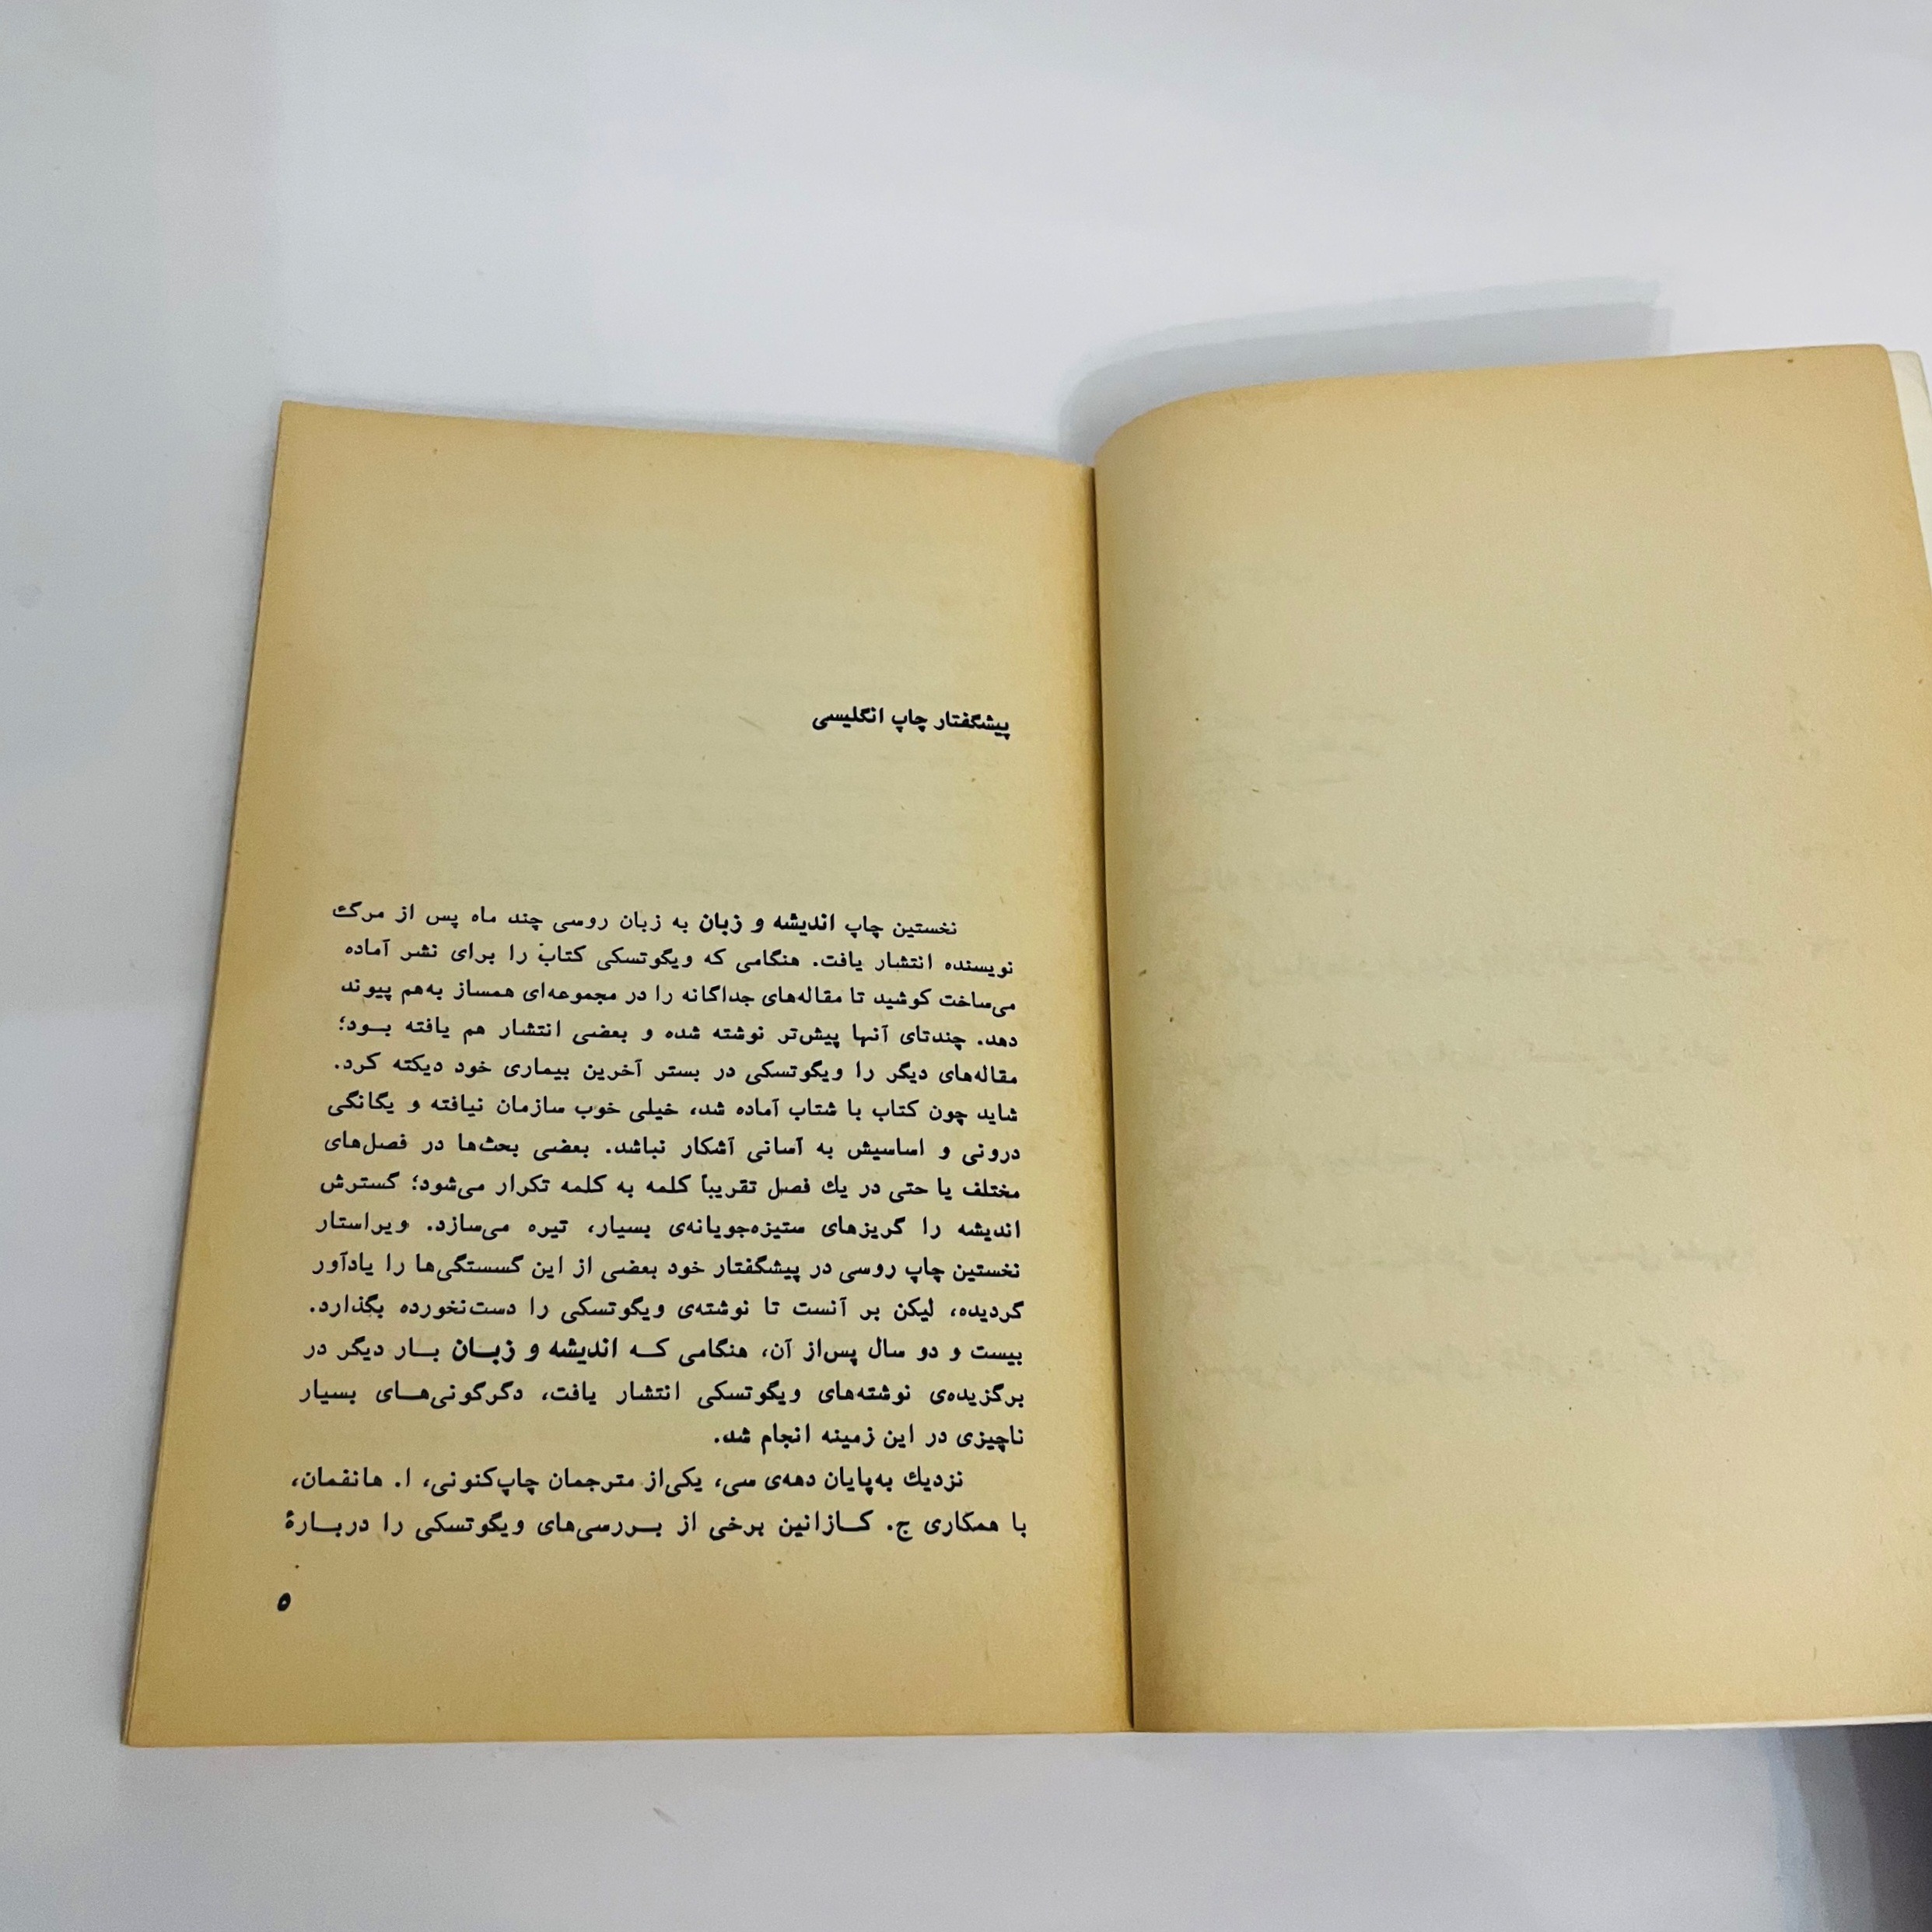 پیشگفتار چاپ انگلیسی
نخستین چاپ اندیشه و زبان به زبان روسی چند ماه پس از مرگ
نویسنده انتشار یافت. هنگامی که ویگوتسکی کتاب را برای نشر آماده
می‌ساخت کوشید تا مقاله‌های جداگانه را در مجموعه‌ای همساز به‌هم پیوند
دهد. چندتای آنها پیش‌تر نوشته شده و بعضی انتشار هم یافته بود؛
مقاله‌های دیگر را ویگوتسکی در بستر آخرین بیماری خود دیکته کرد.
شاید چون کتاب با شتاب آماده شد، خیلی خوب سازمان نیافته و یگانگی
درونی و اساسیش به آسانی آشکار نباشد. بعضی بحث‌ها در فصل‌های
مختلف یا حتی در یك فصل تقریباً کلمه به کلمه تکرار می‌شود؛ گسترش
اندیشه را گریزهای ستیزه‌جویانه‌ی بسیار، تیره می‌سازد. ویراستار
نخستین چاپ روسی در پیشگفتار خود بعضی از این گسستگی‌ها را یادآور
گردیده، لیکن بر آنست تا نوشته‌ی ویگوتسکی را دست‌نخورده بگذارد.
بیست و دو سال پس‌از آن، هنگامی کـه اندیشه و زبـان بـار دیگر در
برگزیده‌ی نوشته‌های ویگوتسکی انتشار یافت، دگرگونی‌هـای بسیار
ناچیزی در این زمینه انجام شد.
نزدیك به‌پایان دهه‌ی سی، یکی‌از مترجمان چاپ‌کنونی، ا. هانفمان،
با همکاری ج. کـازانین برخی از بـررسی‌های ویگوتسکی را دربـارۀ
۵